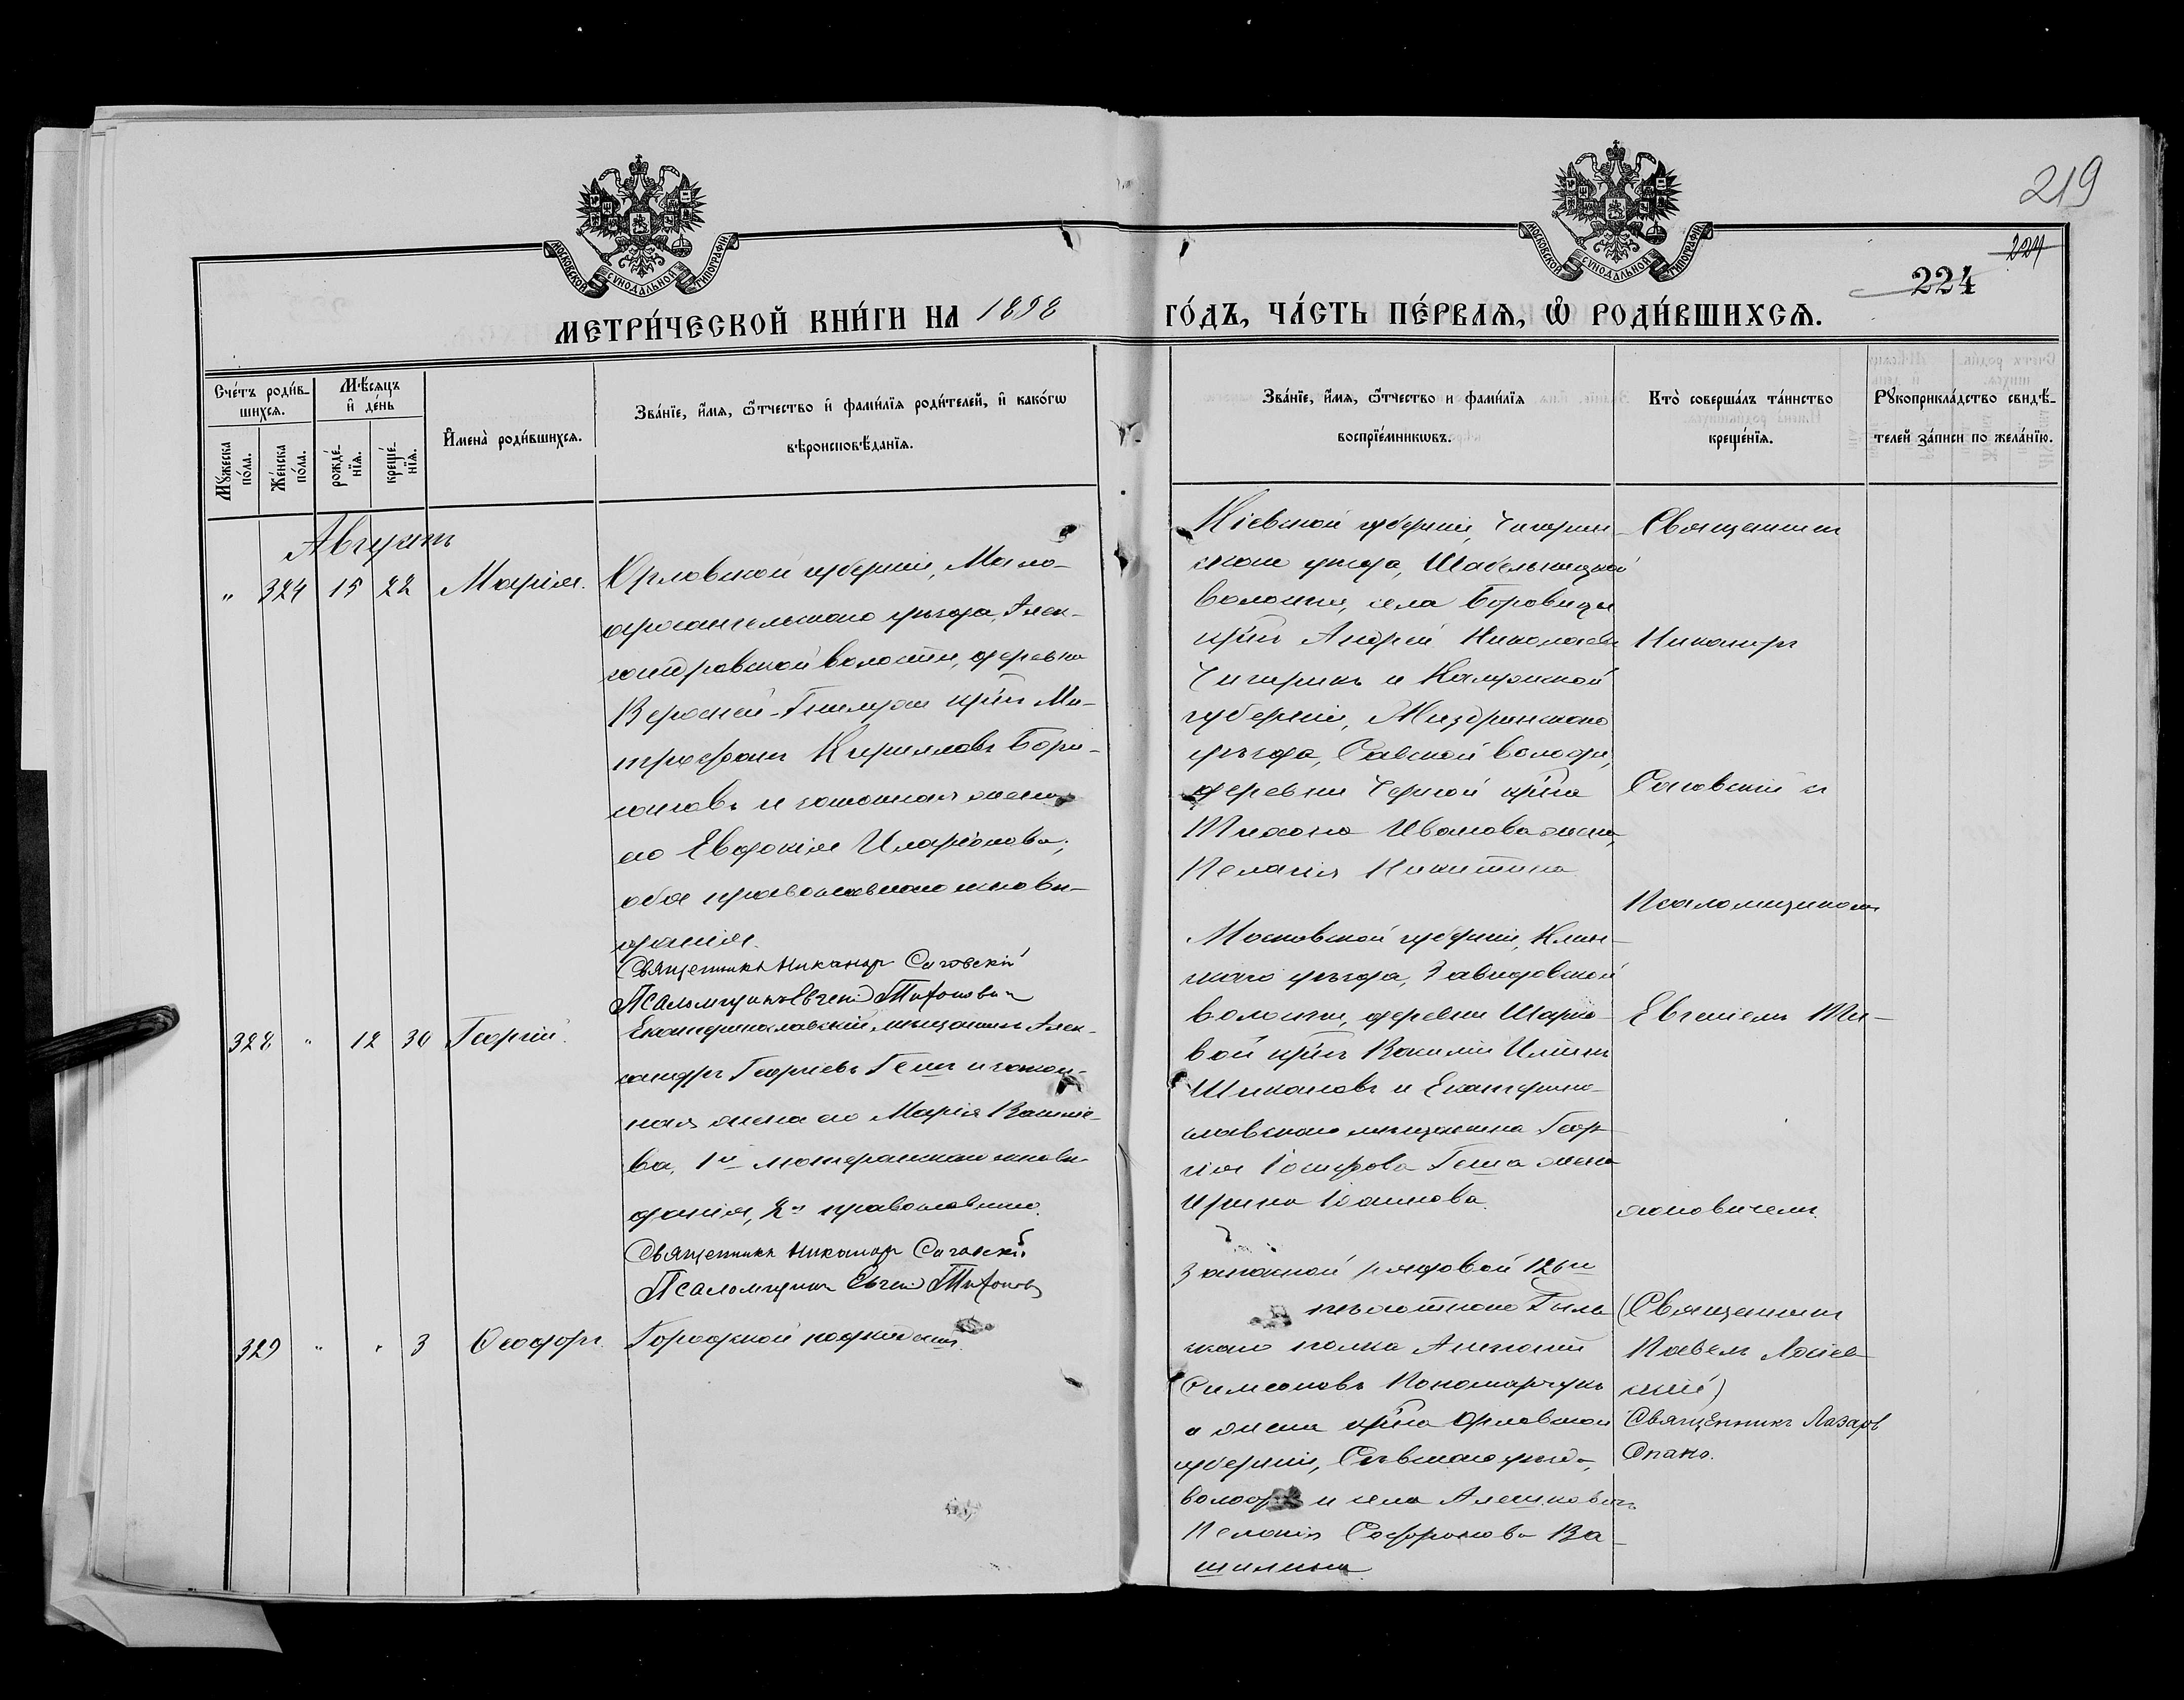 219
224
224
МОСКОВСКОЙ СѴНОДАЛЬНОЙ ТИПОГРАФІИ
МОСКОВСКОЙ СѴНОДАЛЬНОЙ ТИПОГРАФІИ
МЕТРИ́ЧЕСКОЙ КНИ́ГИ НА 1898
ГО́ДЪ, ЧА́СТЬ ПЕ́РВАѦ, Ѽ РОДИ́ВШИХСѦ.
Сче́тъ роди́в-
шихся.
Мꙋжеска по́ла.
Же́нска по́ла.
Мѣ́сяцъ и҆ де́нь
рожде́-нїя.
креще́-нїя.
И҆мена̀ роди́вшихся.
Зва́нїе, и҆́мя, ѻ҆́тчество и҆ фами́лїя роди́телей, и҆ како́гѡ
вѣроисповѣ́данїя.
Зва́нїе, и҆́мя, ѻ҆́тчество и фами́лїя
воспрїе́мникѡвъ.
Кто̀ соверша́лъ та́инство
креще́нїя.
Рꙋкоприкла́дство свидѣ́-
телей за́писи по жела́нїю.
Августъ
„ 324 15 22 Марія.
Орловской губерніи, Мало-
архангельскаго уѣзда, Алек-
сандровской волости, деревни
Верхней-Гнилуши крⷭ҇нъ Ми-
трофанъ Кирилловъ Бори-
совъ и законная жена
его Евдокія Иларіонова;
обое православнаго исповѣ-
данія.
Священникъ Никаноръ
Псаломщикъ Евгеній Тихонович
Кіевской губерніи, Чигирин-
скаго уѣзда, Шабельницкой
волости, села Боровицы
крⷭ҇нъ Андрей Николаевъ
Чигиринъ и Калужской
губерніи, Жиздринскаго
уѣзда, Савской волости,
деревни Черной крⷭ҇на
Тихона Иванова жена,
Пелагія Никитина
Священникъ
Никаноръ
Псаломщикомъ
Евгеніемъ Ти-
хоновичемъ.
328 „ 12 30 Георгій.
Екатеринославскій мѣщанинъ Алек-
сандръ Георгіевъ Гешъ и закон-
ная жена его Марія Василіе-
ва, 1й лютеранскаго исповѣ-
данія, 2я православнаго.
Священникъ Никаноръ
Псаломщикъ Евгеній Тихонов
Московской губерніи, Клин-
скаго уѣзда, Завидовской
волости, деревни Шарко-
вой крⷭ҇нъ Василій Иліинъ
Шикановъ и Екатерино-
славскаго мѣщанина Геор-
гія Іосифова Геша жена
Ирина Іоаннова.
329 „ „ 3 Ѳеодоръ.
Городской подкидышъ.
Запасной рядовой 126го
пѣхотнаго
скаго полка Антоній
Симеоновъ Пономарчукъ
и жена крⷭ҇на Орловской
губерніи, Сѣвскаго уѣзда,
волости и села Алешковичъ
Пелагія Софронова Ва-
шилина
(Священникъ
Павелъ
скій)
Священникъ Лазарь
Опанъ.